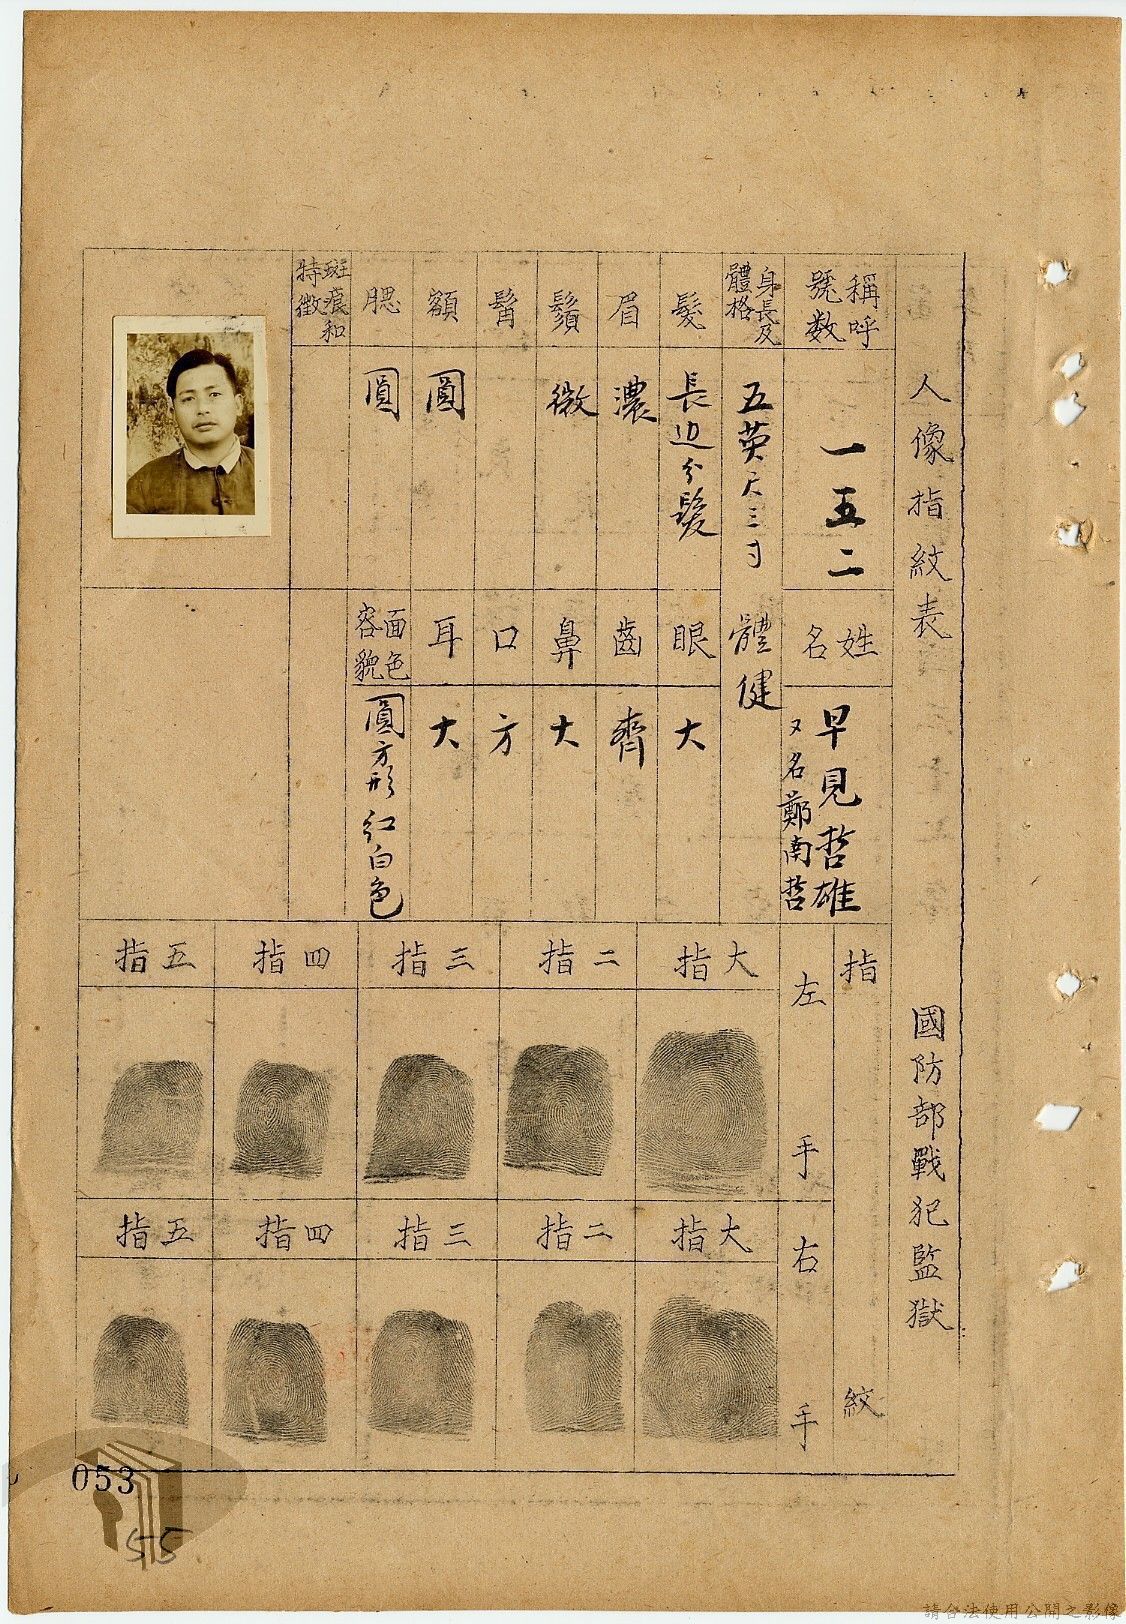 人像指紋表
國防部戰犯監獄
稱呼
號数
一五二
姓名
早見哲雄
又名鄭南哲
身長及
體格
五英尺三寸
體健
髮
長边分髮
眼
大
眉
濃
齒
齊
鬚
微
鼻
大
髯
口
方
額
圓
耳
大
腮
圓
面色
容貌
圓方形 紅白色
斑痕和
特徵
指紋
左手
大指
二指
三指
四指
五指
右手
大指
二指
三指
四指
五指
053
55
請合法使用公開之影像